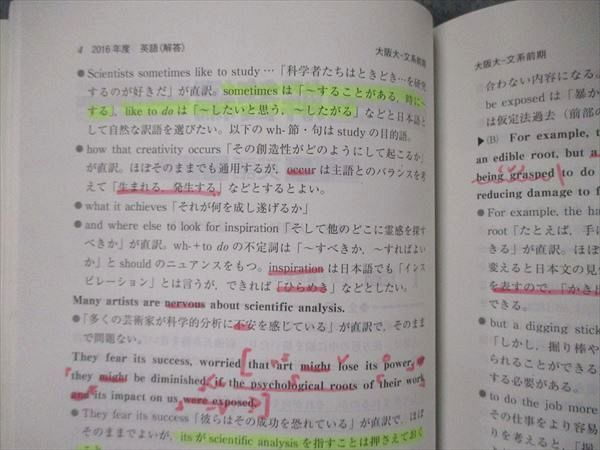 4 2016年度 英語〈解答〉 大阪大-文系前期
●Scientists sometimes like to study …「科学者たちはときどき…を研究
するのが好きだ」が直訳。sometimes は「〜することがある，時に〜
する」，like to do は「〜したいと思う，〜したがる」などと日本語と
して自然な訳語を選びたい。以下の wh- 節・句は study の目的語。
●how that creativity occurs「その創造性がどのようにして起こるか」
が直訳。ほぼそのままでも通用するが，occur は主語とのバランスを考
えて「生まれる，発生する」などとするとよい。
●what it achieves「それが何を成し遂げるか」
●and where else to look for inspiration「そして他のどこに霊感を探す
べきか」が直訳。wh-＋to do の不定詞は「〜すべきか，〜すればよい
か」と should のニュアンスをもつ。inspiration は日本語でも「インス
ピレーション」とは言うが，できれば「ひらめき」などとしたい。
Many artists are nervous about scientific analysis.
●「多くの芸術家が科学的分析に不安を感じている」が直訳で，そのまま
で問題ない。
They fear its success, worried that art might lose its power,
they might be diminished, if the psychological roots of their work
and its impact on us were exposed.
●They fear its success「彼らはその成功を恐れている」が直訳で，ほぼ
そのままでよいが，its が scientific analysis を指すことは押さえておく
大阪大-文系前期
合わない内容になる。
be exposed は「暴か
は仮定法過去（前部の
▶(B) For example, t
an edible root, but a
being grasped to do
reducing damage to f
●For example, the ha
root「たとえば，手に
きる」が直訳。ほぼ
変えると日本文の見
を表すので，「かき出
できる。
●but a digging stick
「しかし，掘り棒や
られることができる
する必要がある。
●to do the job more
「その仕事をより容易
りを考えると，「掘